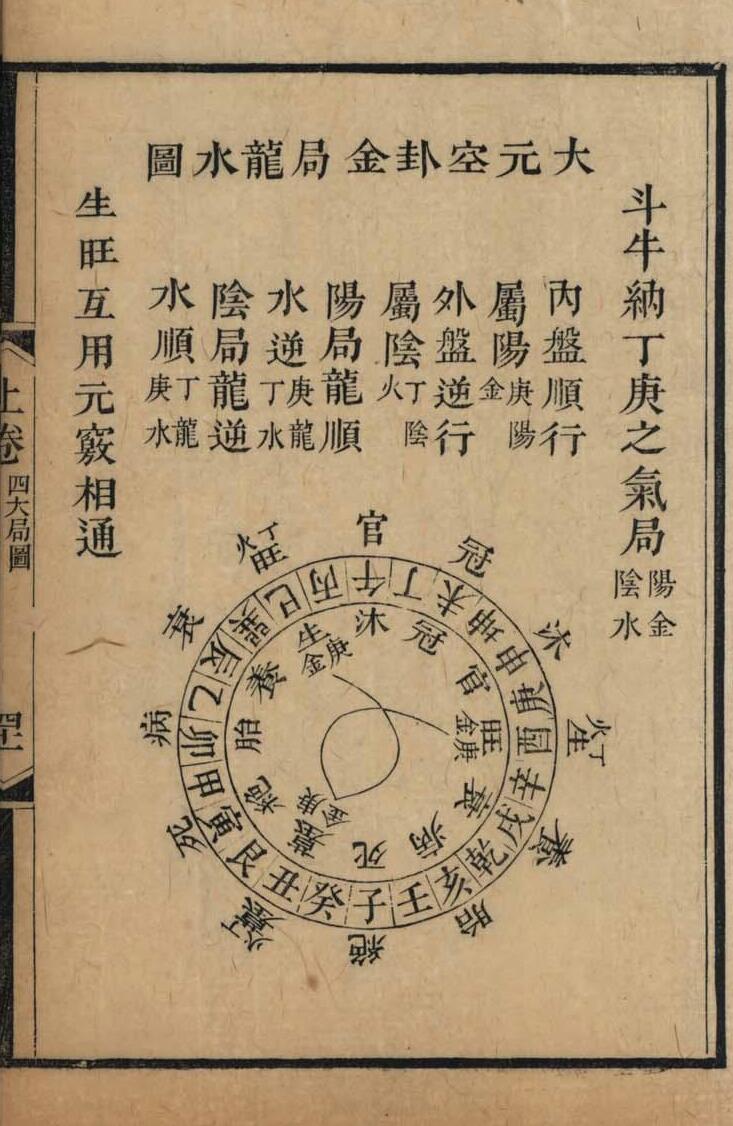 大元空卦金局龍水圖
斗牛納丁庚之氣局陽金陰水
內盤順行
屬陽庚陽金
外盤逆行
屬陰丁陰火
陽局龍順
水逆庚龍丁水
陰局龍逆
水順丁龍庚水
生旺互用元竅相通
官
冠
沐
生丁火
養
胎
絕
墓丁火
死
病
衰
旺丁火
午丁未坤申庚酉辛戌乾亥壬子癸丑艮寅甲卯乙辰巽巳丙
沐
冠
官
旺庚金
衰
病
死
墓庚金
絕
胎
養
生庚金
上卷
四大局圖